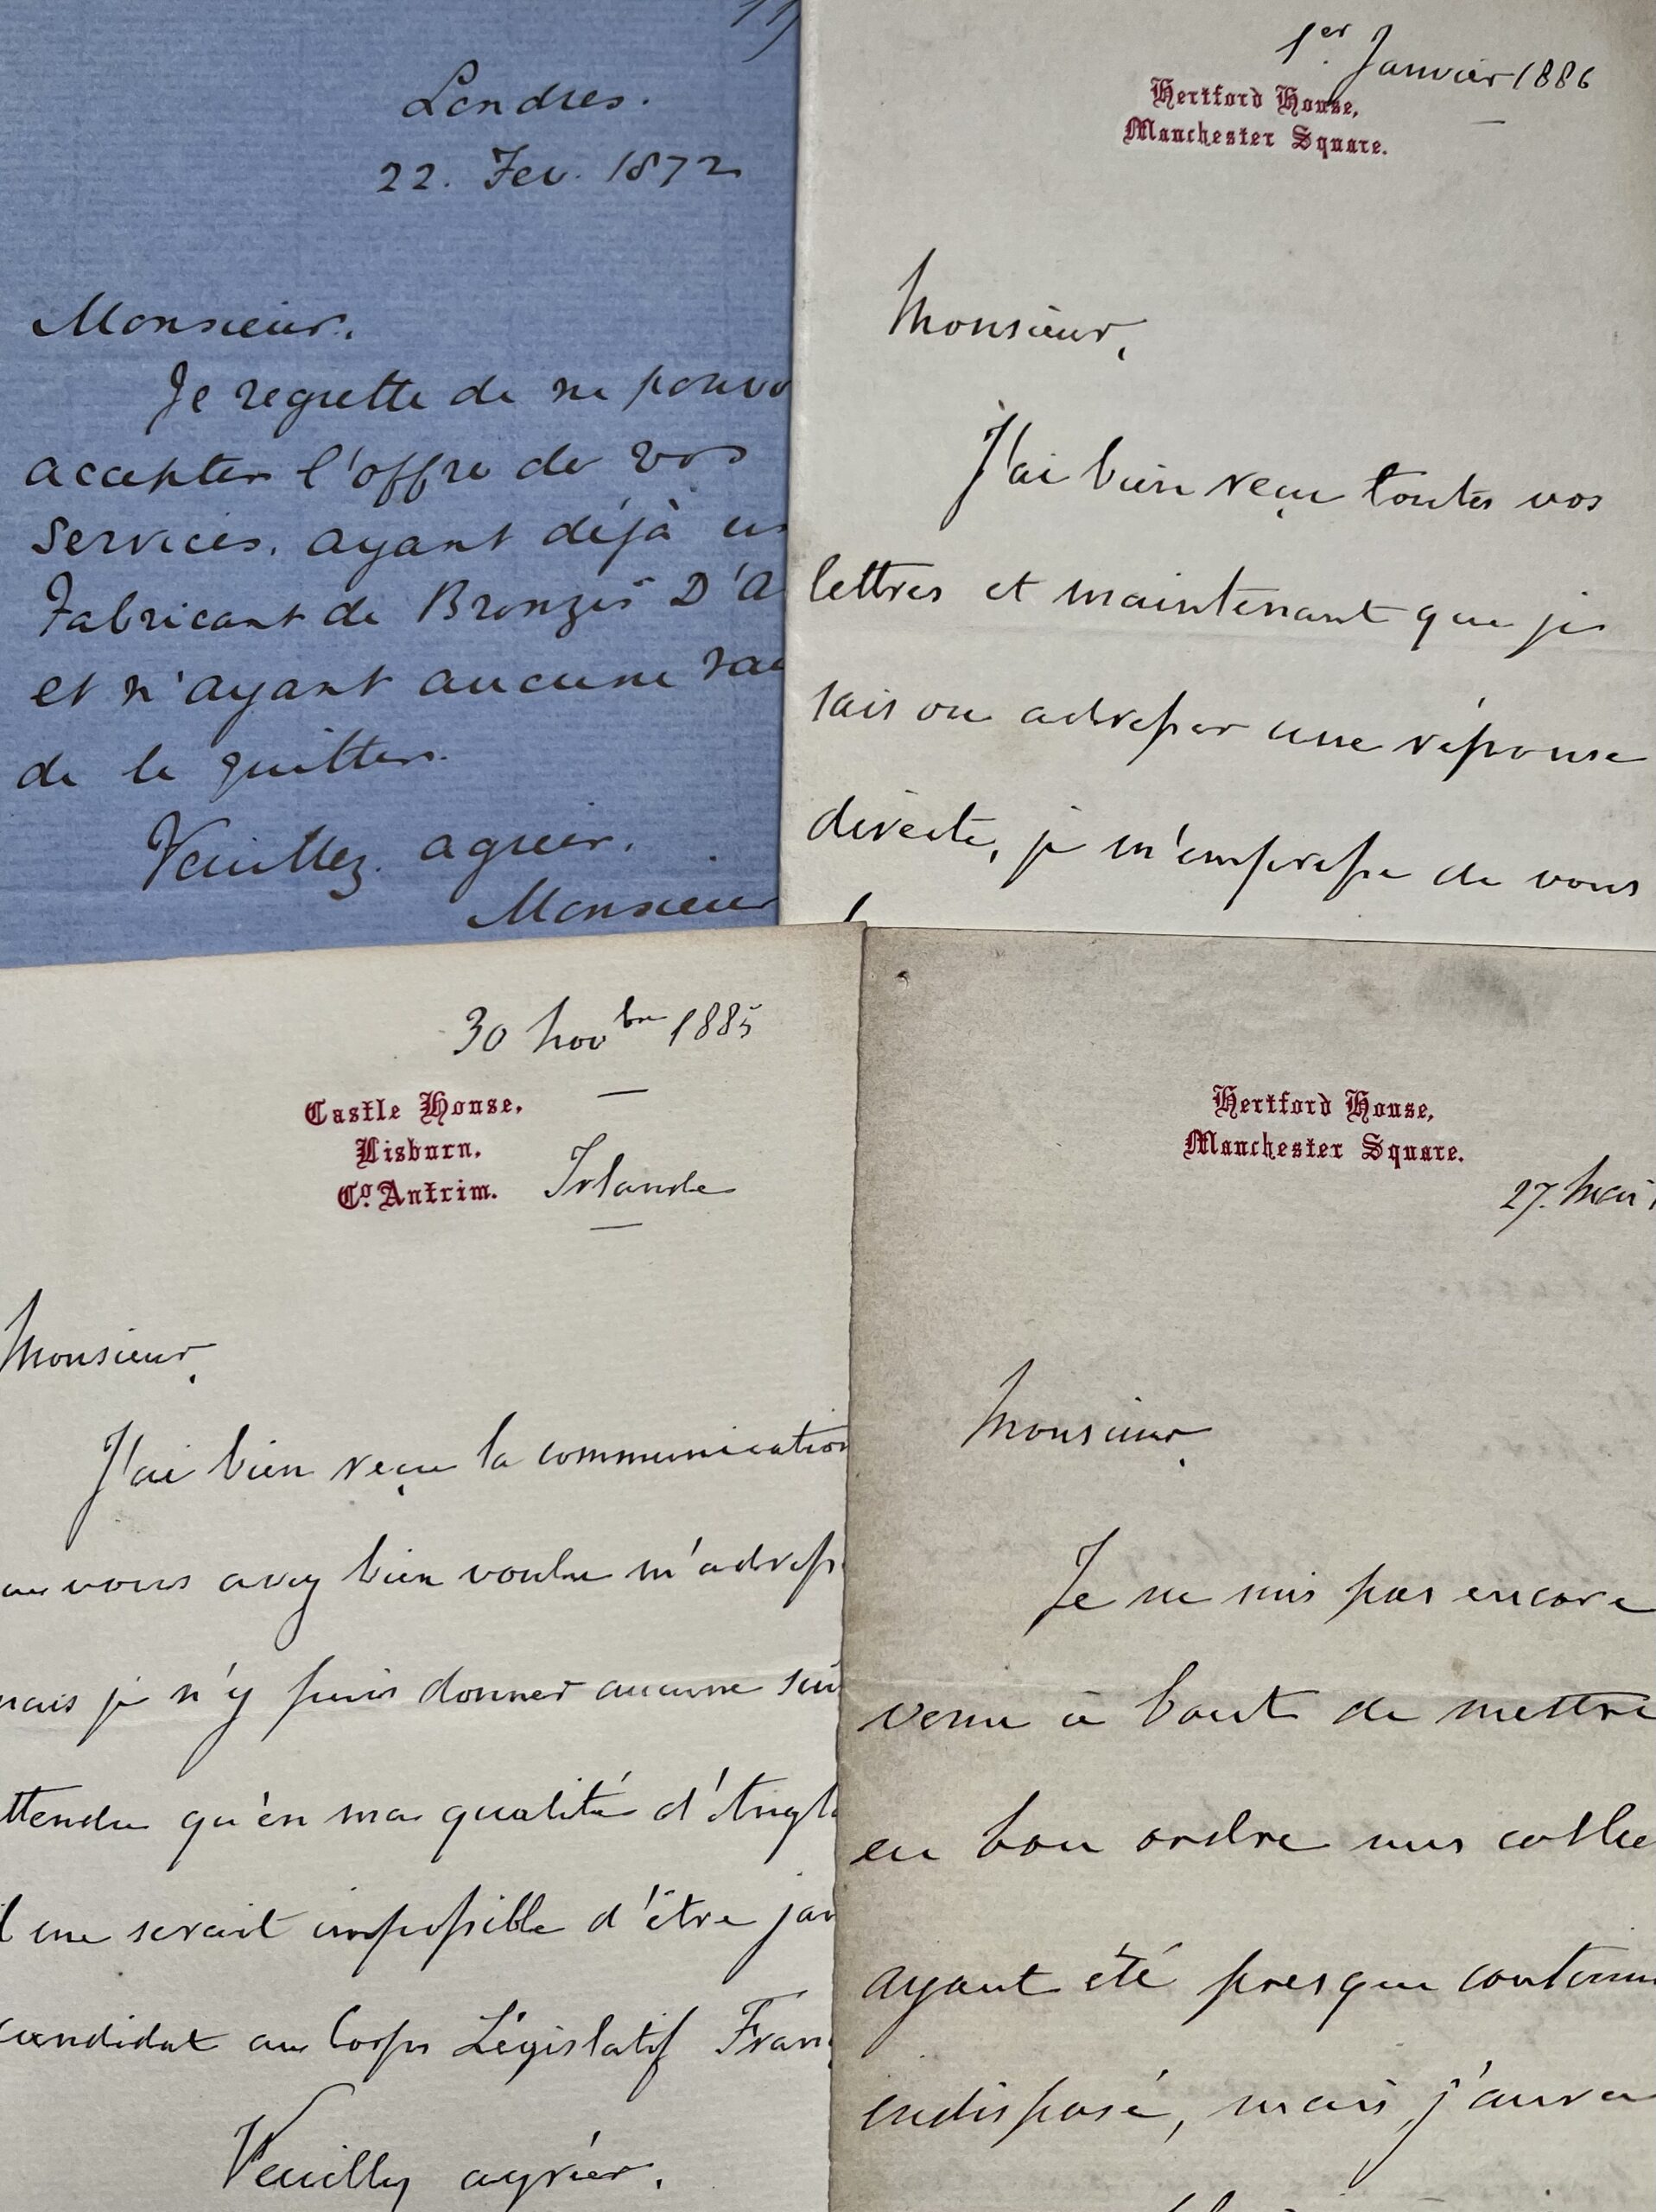 Londres.
22. Fev. 1872
Monsieur.
Je regrette de ne pouvo
accepter l'offre de vos
services. ayant déjà un
Fabricant de Bronzes D'A
et n'ayant aucune rai
de le quitter.
Veuillez agréer.
Monsieur
1er Janvier 1886
Hertford House,
Manchester Square.
Monsieur,
J'ai bien reçu toutes vos
lettres et maintenant que je
sais ou adresser une réponse
directe, je m'empresse de vous
30 Novbre 1885
Castle House,
Lisburn.
Co. Antrim.
Irlande
Monsieur,
J'ai bien reçu la communication
que vous avez bien voulu m'adress
mais je n'y puis donner aucune sui
ttendu qu'en ma qualité d'Angl
il me serait impossible d'être jam
candidat au Corps Législatif Franç
Veuillez agréer.
Hertford House,
Manchester Square.
27. Mai 1
Monsieur,
Je ne suis pas encore
venu à bout de mettre
en bon ordre mes colle
ayant été presque continu
indisposé, mais j'aurai